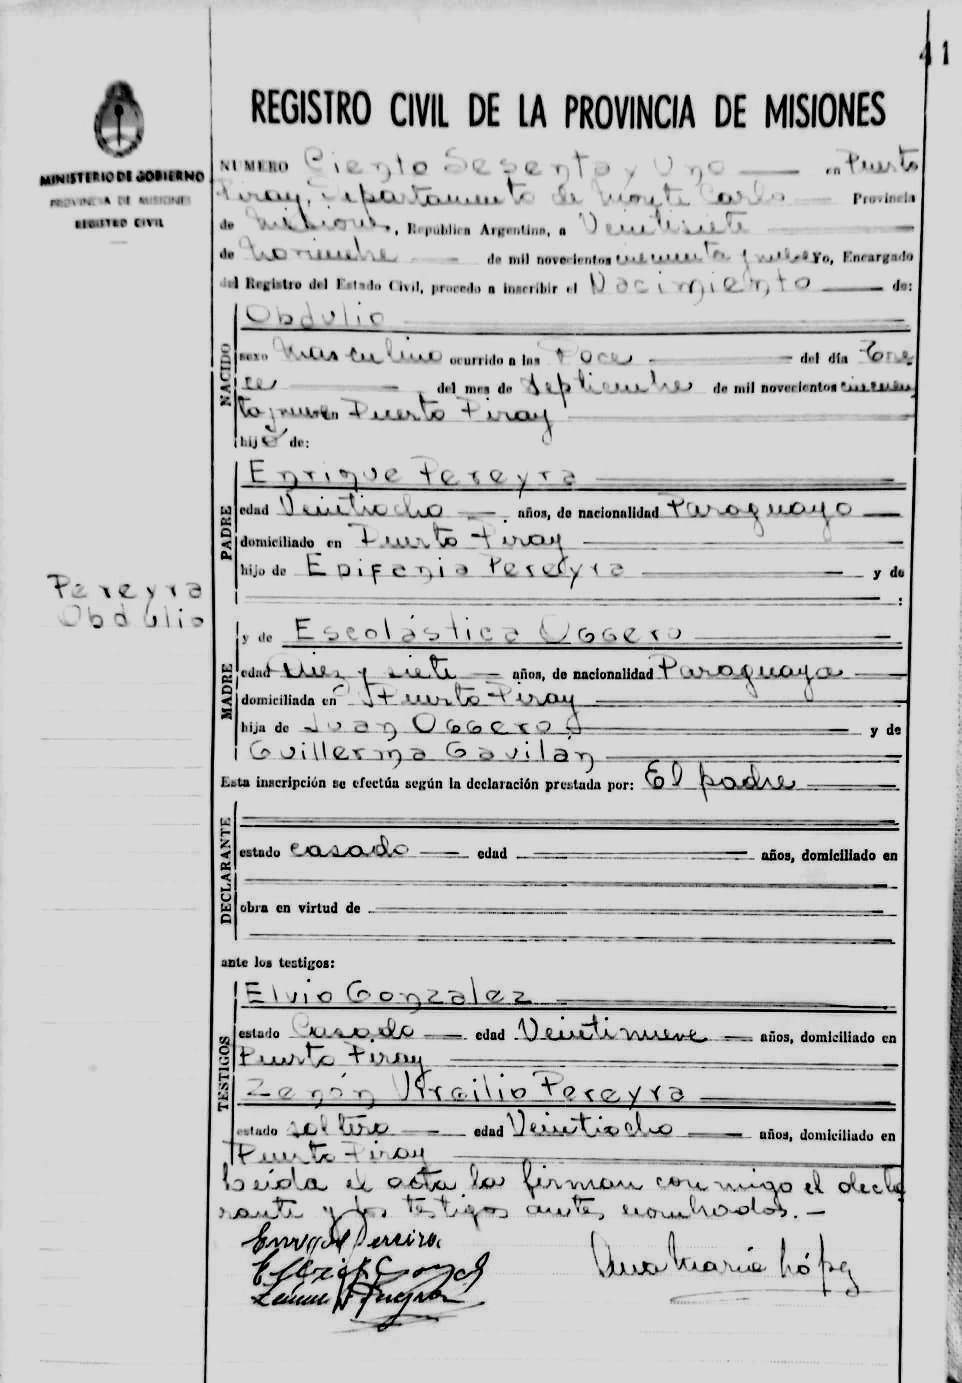 41
MINISTERIO DE GOBIERNO
PROVINCIA DE MISIONES
REGISTRO CIVIL
REGISTRO CIVIL DE LA PROVINCIA DE MISIONES
NUMERO Ciento Sesenta y Uno en Puerto
Piray, Departamento de Monte Carlo Provincia
de Misiones, República Argentina, a Veintisiete
de Noviembre de mil novecientos cincuenta y nueve Yo, Encargado
del Registro del Estado Civil, procedo a inscribir el Nacimiento de:
NACIDO
Obdulio
sexo Masculino ocurrido a las Doce del día Tre
ce del mes de Septiembre de mil novecientos cincuen
ta y nueve en Puerto Piray
hijo de:
PADRE
Enrique Pereyra
edad Veintiocho años, de nacionalidad Paraguayo
domiciliado en Puerto Piray
hijo de Epifania Pereyra y de
:
Pereyra
Obdulio
MADRE
y de Escolástica Oggero
edad Diez y siete años, de nacionalidad Paraguaya
domiciliada en Puerto Piray
hija de Juan Oggero y de
Guillerma Gavilán
Esta inscripción se efectúa según la declaración prestada por: El padre
DECLARANTE
estado casado edad años, domiciliado en
obra en virtud de
ante los testigos:
TESTIGOS
Elvio Gonzalez
estado Casado edad Veintinueve años, domiciliado en
Puerto Piray
Zenón Virgilio Pereyra
estado soltero edad Veintiocho años, domiciliado en
Puerto Piray
Leida el acta la firman conmigo el decla
rante y los testigos antes nombrados.-
Enrique Pereira
Ana Maria López